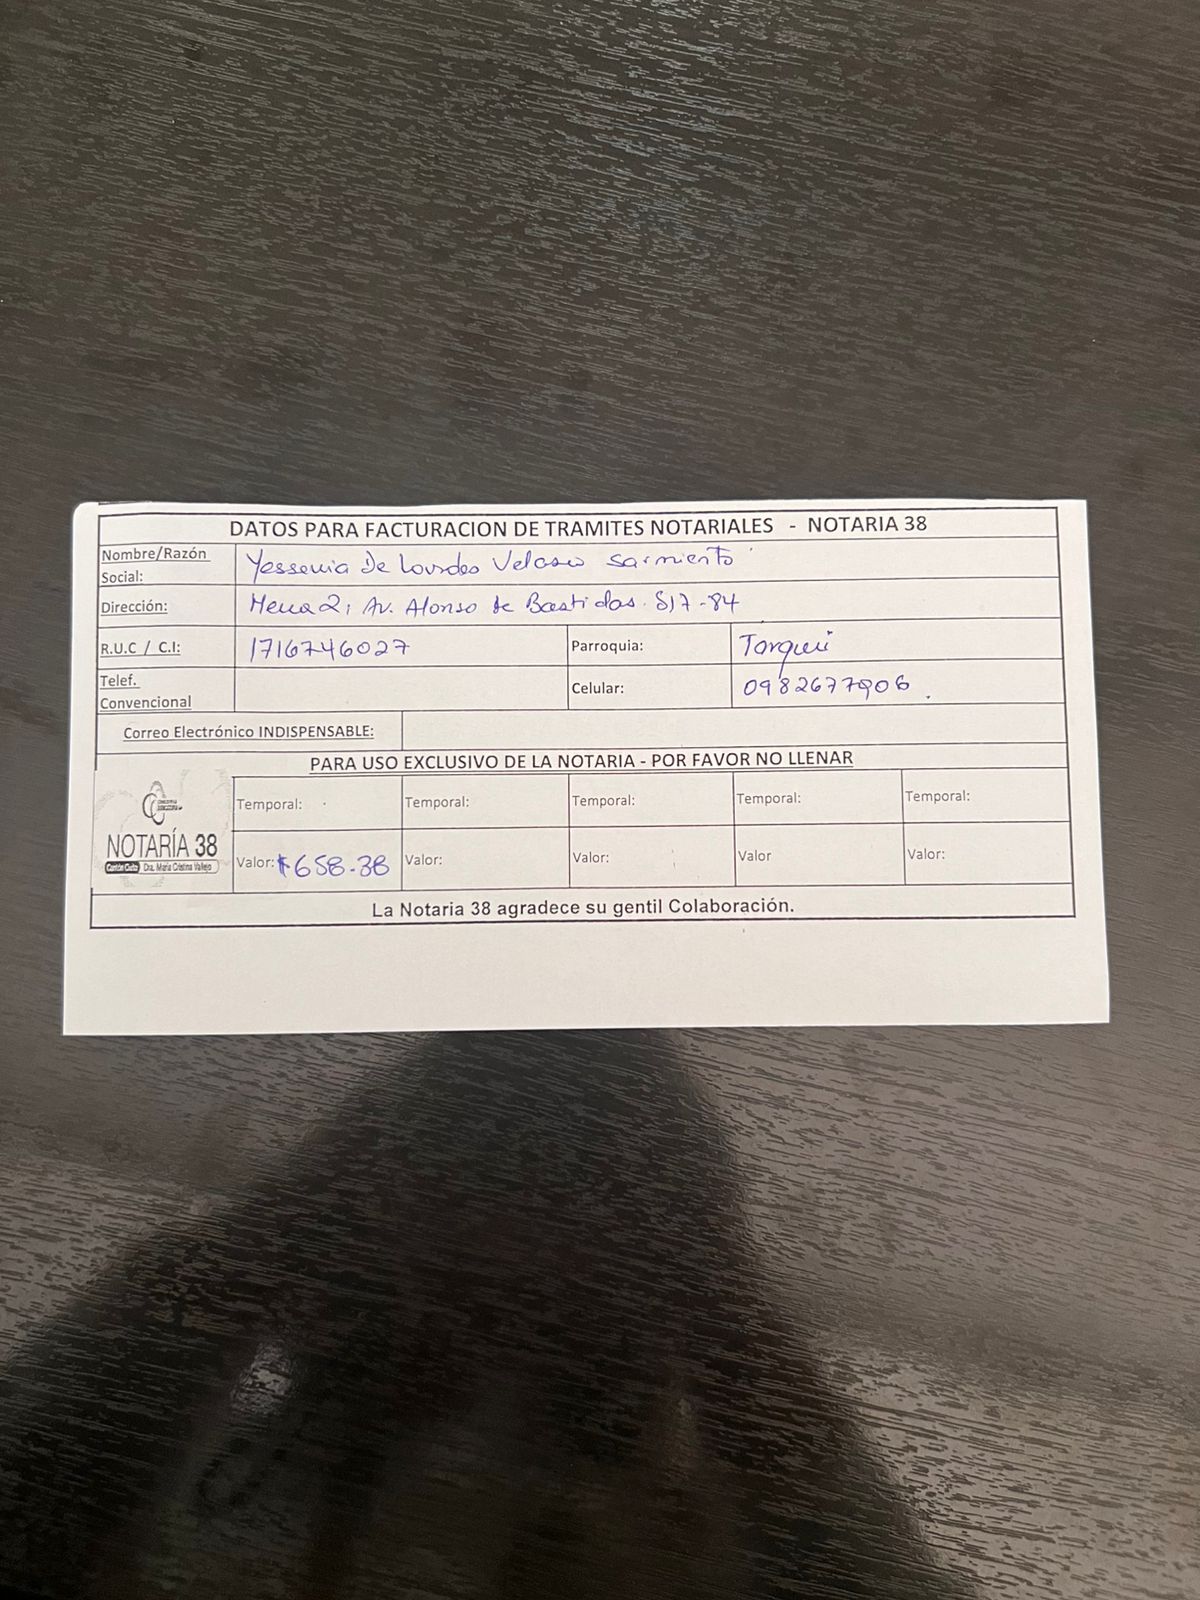 DATOS PARA FACTURACION DE TRAMITES NOTARIALES - NOTARIA 38
Nombre/Razón Social: Yessenia De Lourdes Velasco Sarmiento
Dirección: Mena 2, Av. Alonso de Bastidas. S17-84
R.U.C / C.I: 1716746027 Parroquia: Torqui
Telef. Convencional Celular: 0982677906
Correo Electrónico INDISPENSABLE:
PARA USO EXCLUSIVO DE LA NOTARIA - POR FAVOR NO LLENAR
Temporal: Temporal: Temporal: Temporal: Temporal:
NOTARÍA 38
Dra. María Cristina Vallejo
Valor: $658.38 Valor: Valor: Valor Valor:
La Notaria 38 agradece su gentil Colaboración.